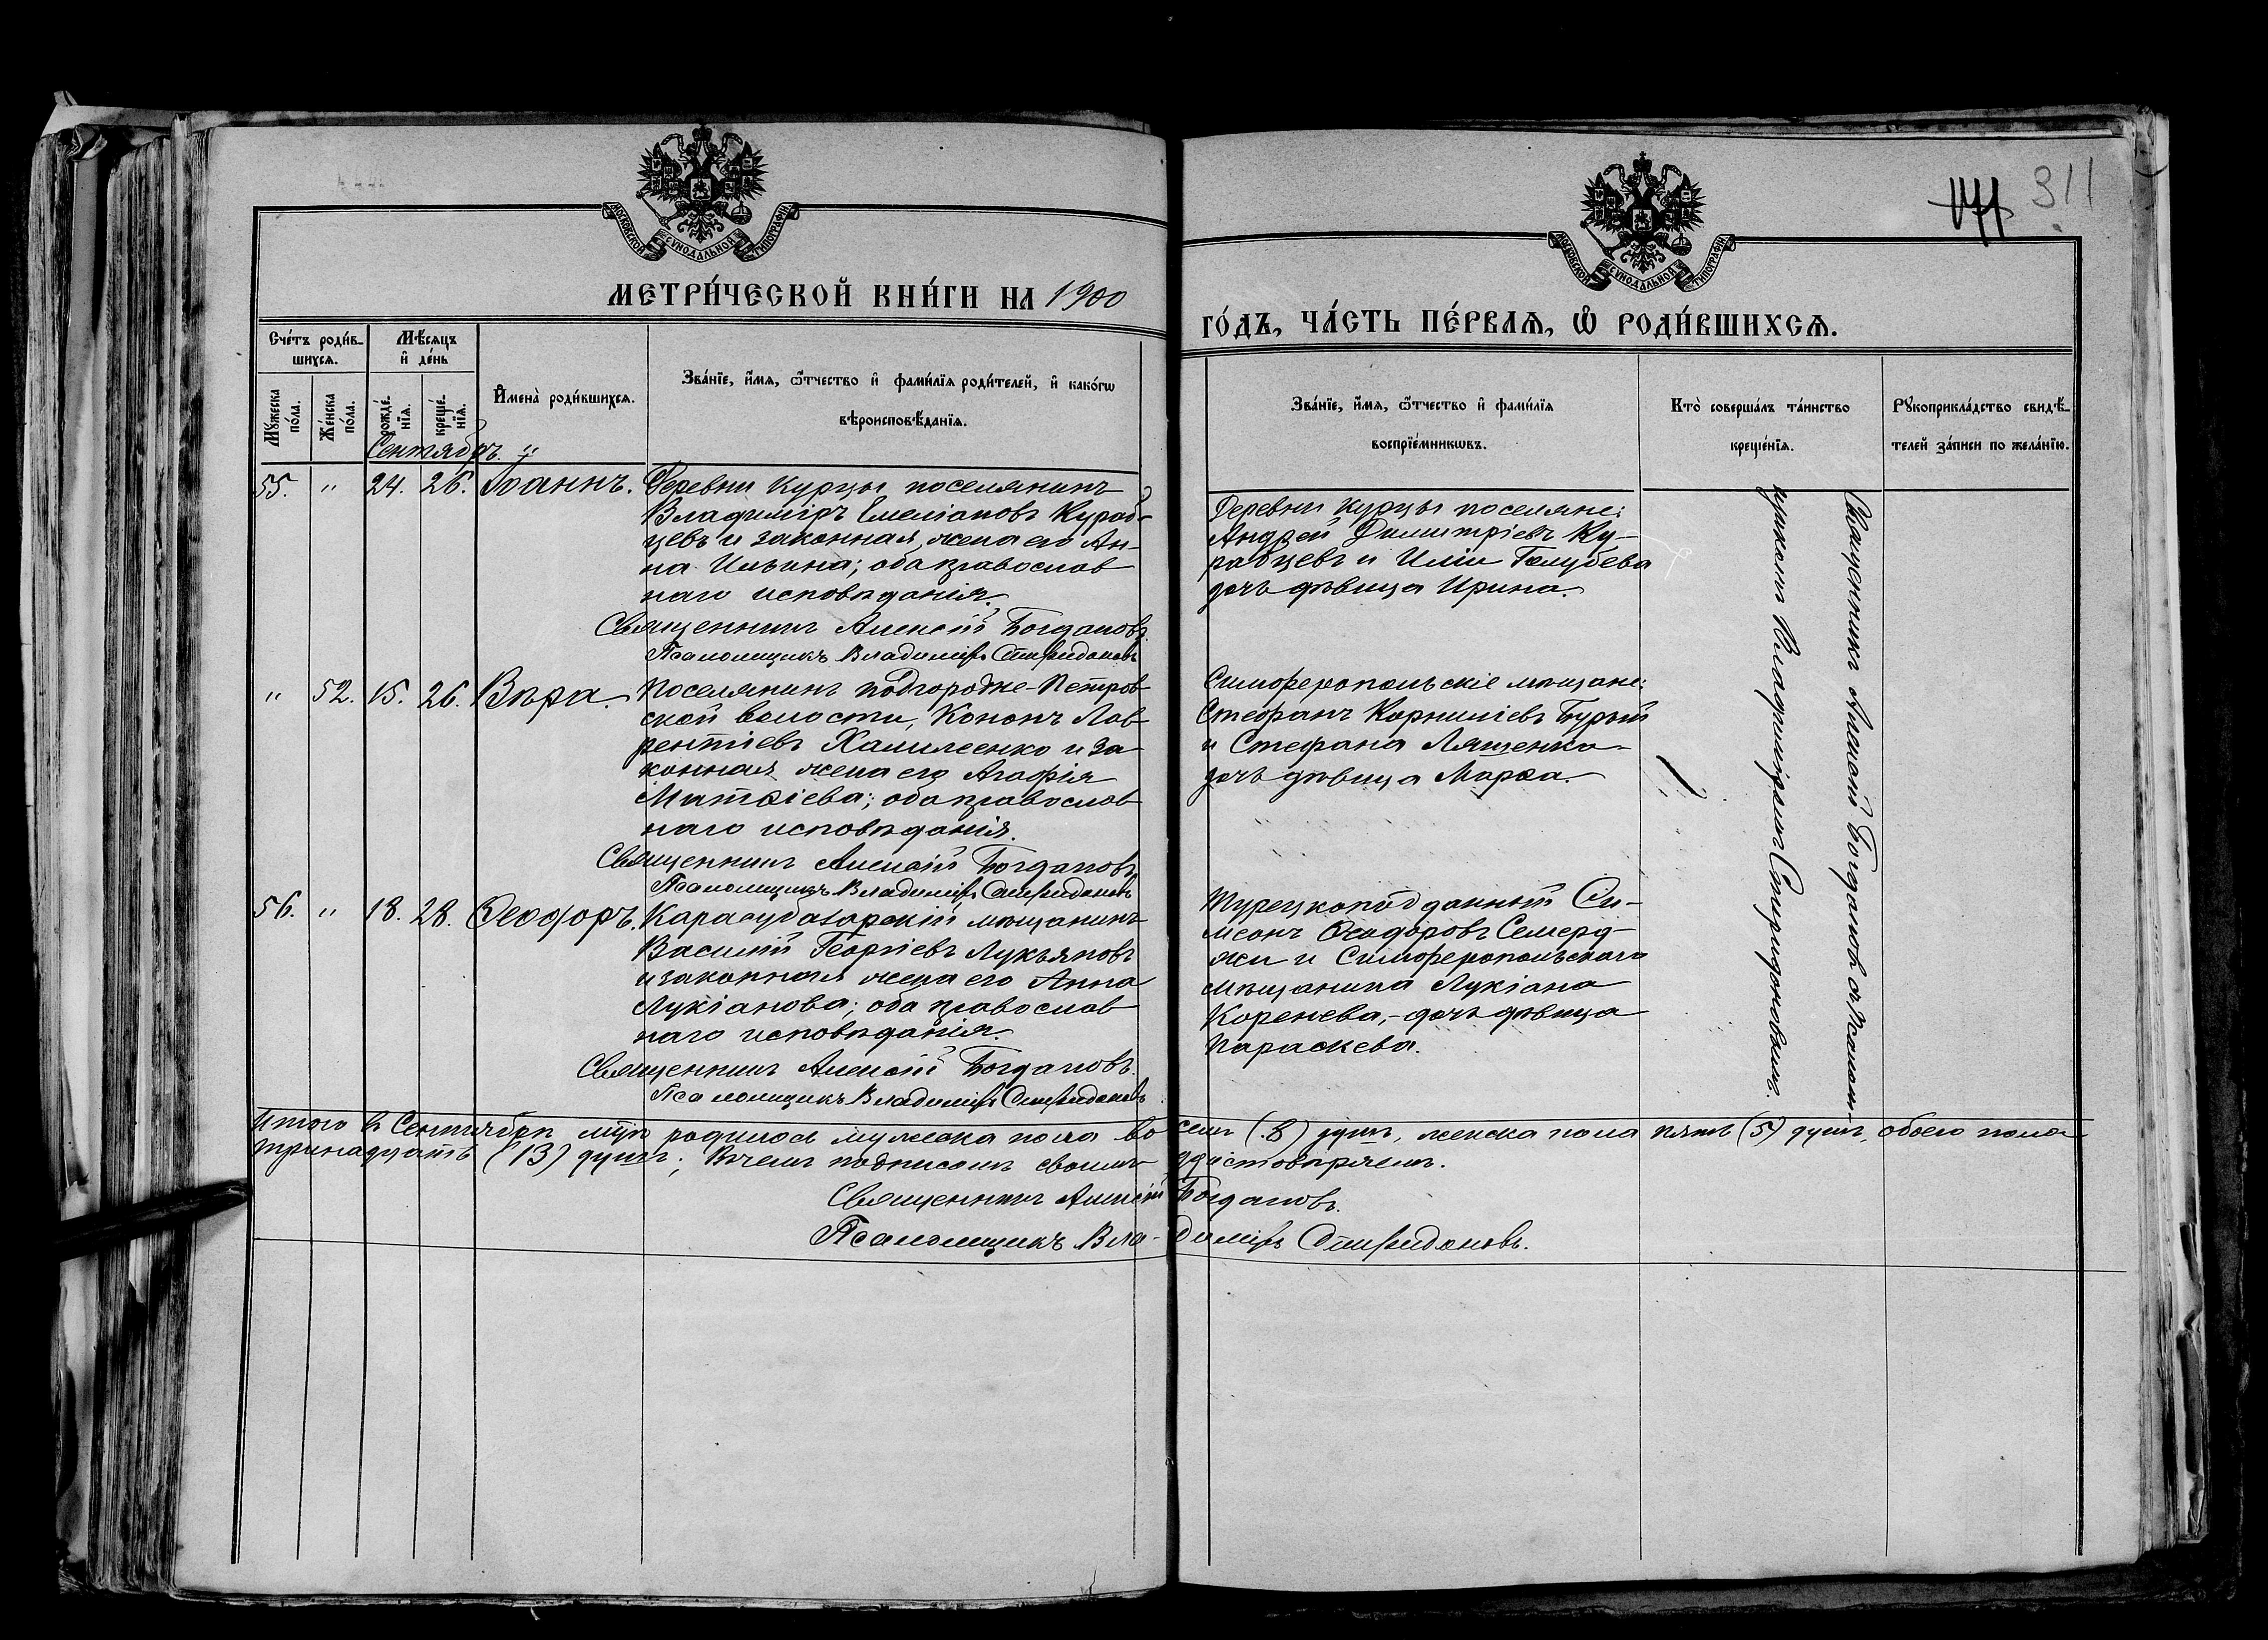 311
171
МОСКОВСКОЙ СѴНОДАЛЬНОЙ ТИПОГРАФІИ
МОСКОВСКОЙ СѴНОДАЛЬНОЙ ТИПОГРАФІИ
МЕТРИ́ЧЕСКОЙ КНИ́ГИ НА 1900
ГО́ДЪ, ЧА́СТЬ ПЕ́РВАЯ, Ѽ РОДИ́ВШИХСЯ.
Сче́тъ роди́в-
шихся.
Мѣ́сяцъ
и҆ де́нь
Мꙋ́жеска
по́ла.
Же́нска
по́ла.
рожде́-
нїя.
креще́-
нїя.
И҆мена̀ роди́вшихся.
Зва́нїе, и҆́мя, ѻ҆́тчество и҆ фами́лїя роди́телей, и҆ како́гѡ
вѣроисповѣ́данїя.
Зва́нїе, и҆́мя, ѻ҆́тчество и҆ фами́лїя
воспрїе́мникѡвъ.
Кто̀ соверша́лъ та́инство
креще́нїя.
Рꙋкоприкла́дство свидѣ́-
телей за́писи по жела́нїю.
Сентябрь.
55. " 24. 26. Іоаннъ.
Деревни Курцы поселянинъ
Владиміръ Емеліановъ Кураб-
цевъ и законная жена его Ан-
на Ильина; оба православ
наго исповѣданія.
Священникъ Алексій Богдановъ.
Псаломщикъ Владиміръ Спиридоновъ
Деревни Курцы поселяне:
Андрей Димитріевъ Ку-
рабцевъ и Иліи Голубева
дочь дѣвица Ирина.
" 52. 15. 26. Вѣра.
Поселянинъ Подгородне-Петров-
ской волости, Кононъ Лав-
рентіевъ Хамилеенко и за-
конная жена его Агафія
Матѳіева; оба православ
наго исповѣданія.
Священникъ Алексій Богдановъ
Псаломщикъ Владиміръ Спиридоновъ
Симферопольскіе мѣщане:
Стефанъ Корниліевъ Бурый
и Стефана Лященко-
дочь дѣвица Марѳа.
56. " 18. 28. Ѳеодоръ.
Карасубазарскій мѣщанинъ
Василій Георгіевъ Лукьяновъ
и законная жена его Анна
Лукіанова; оба православ
наго исповѣданія.
Священникъ Алексій Богдановъ.
Псаломщикъ Владиміръ Спиридоновъ
Турецкоподданный Си-
меонъ Ѳеодоровъ Семерд-
жи и Симферопольскаго
мѣщанина Лукіана
Коренева,- дочь дѣвица
Параскева.
Священникъ Алексій Богдановъ съ Псалом-
щикомъ Владиміромъ Спиридоновымъ.
Итого въ Сентябрѣ м-цѣ родилось мужеска пола восемь (8) душъ, женска пола пять (5) душъ, обоего пола
тринадцать (13) душъ; въ чемъ подписомъ своимъ удостовѣряемъ.
Священникъ Алексій Богдановъ.
Псаломщикъ Владиміръ Спиридоновъ.